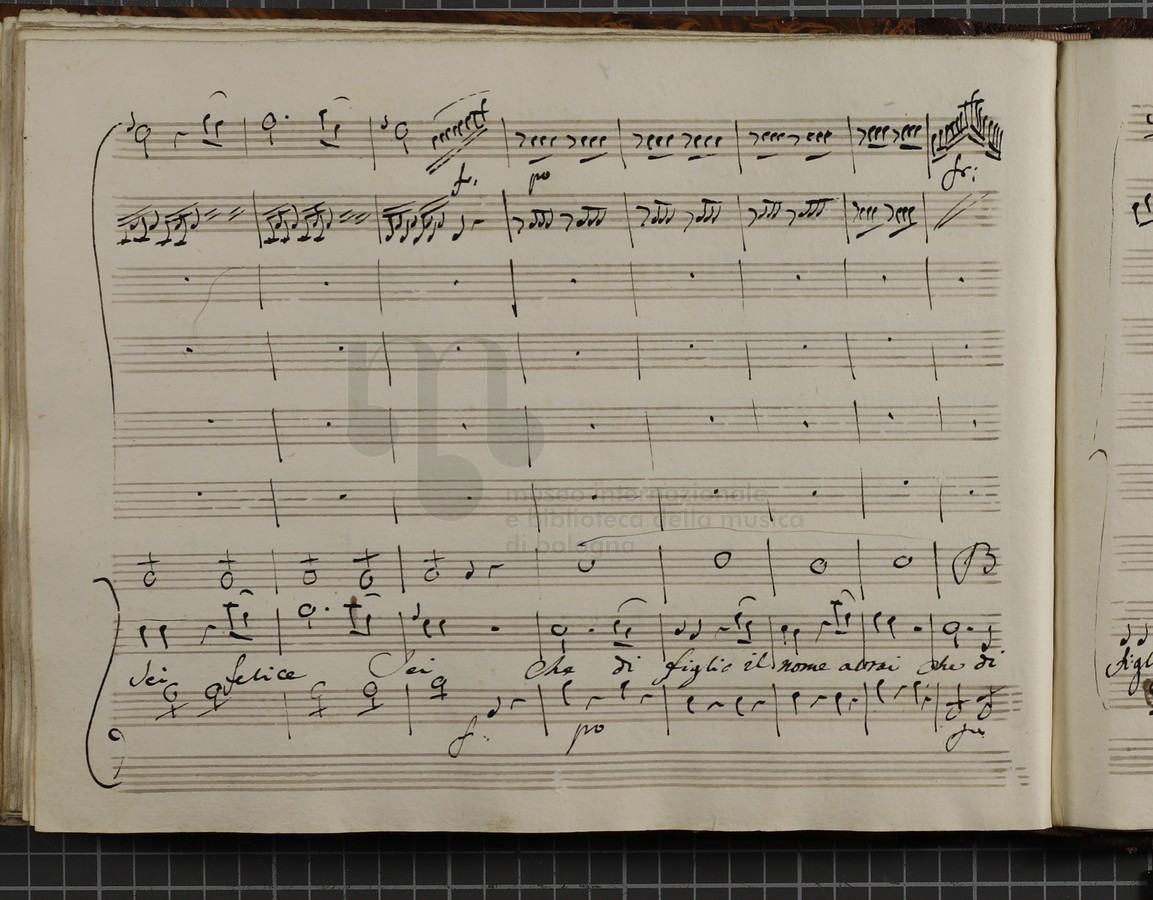 fr: po
fr:
museo internazionale
e biblioteca della musica
di bologna
Sei felice Sei che di figlio il nome avrai che di
f: po